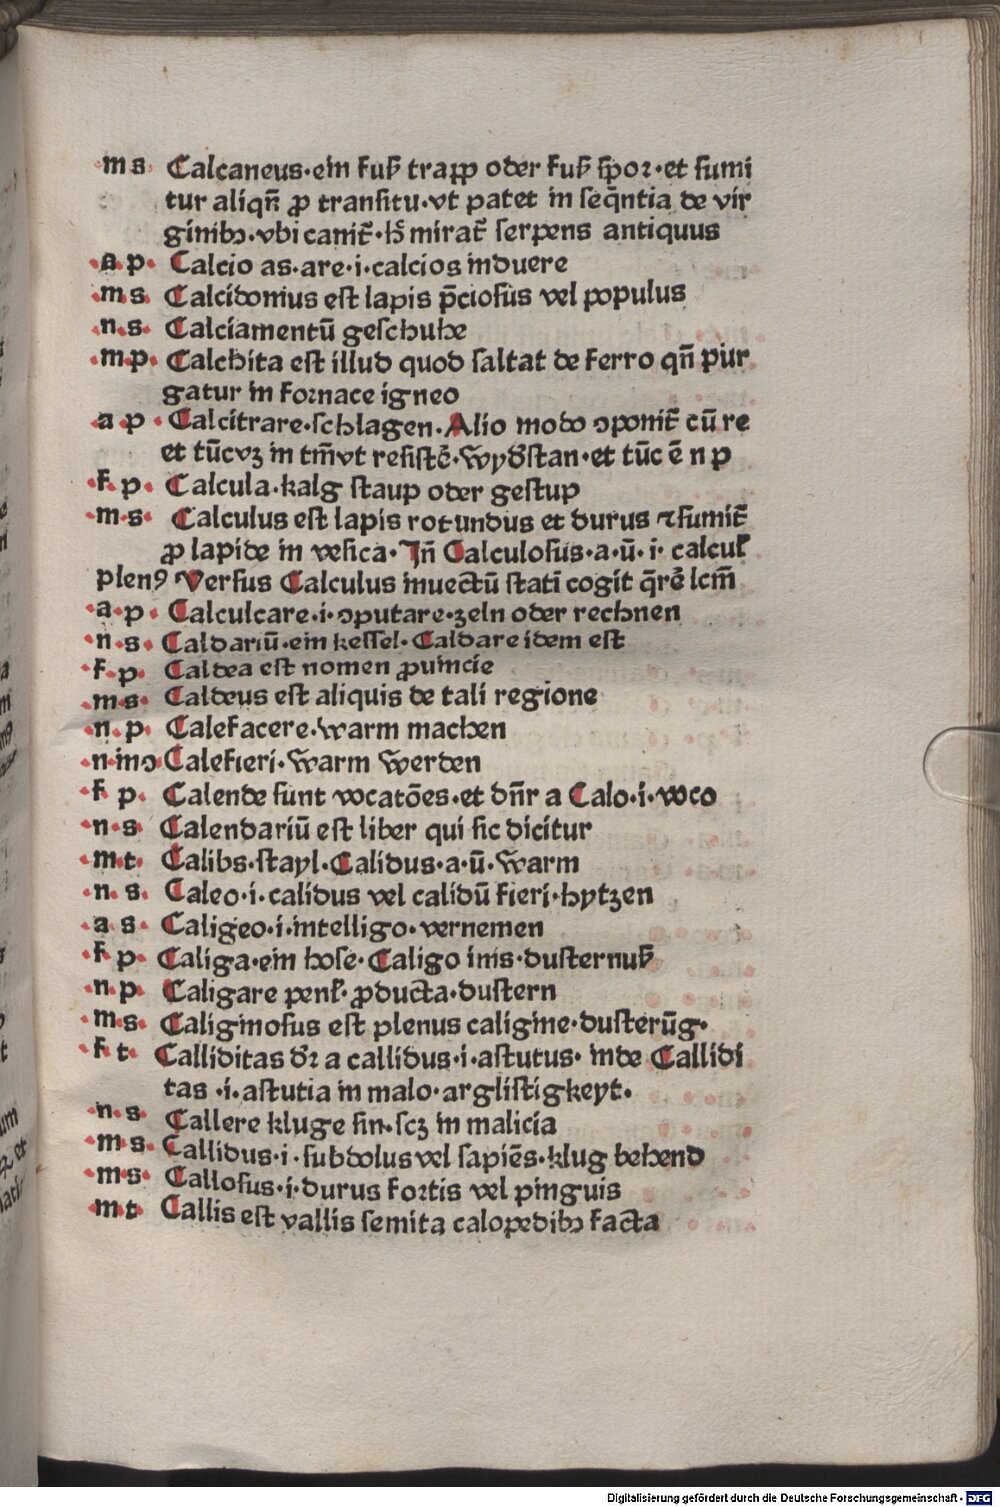 m s Calcaneus·ein fuß trapp oder fuß spor·et sumi
tur aliqñ ꝓ transitu·vt patet in seq̃ntia de vir
ginibꝫ·vbi canit̃·hͦ mirat̃ serpens antiquus
·a p· Calcio as·are·i·calcios induere
·m s· Calcidonius est lapis p̃ciosus vel populus
·n s· Calciamentũ geschuhe
·m p· Calchita est illud quod saltat de ferro qñ pur
gatur in fornace igneo
·a p· Calcitrare·schlagen·Alio modo ꝯponit̃ cũ re
et tũcvꝫ in tm̃vt resistẽ·Wydstan·et tũc ẽ n p
·f p· Calcula·kalg staup oder gestup
·m s· Calculus est lapis rotundus et durus ⁊sumit̃
ꝓ lapide in vesica·Jñ Calculosus·a·ũ·i·calcul̃
plenꝰ Versus Calculus inuectũ stati cogit q̃rẽ lcm̃
·a·p· Calculcare·i·ꝯputare·zeln oder rechnen
·n·s· Caldariũ·ein kessel·Caldare idem est
·f·p· Caldea est nomen ꝓuincie
·m·s· Caldeus est aliquis de tali regione
·n·p· Calefacere·warm machen
·n·inꝯ Calefieri·Warm Werden
·f p· Calende sunt vocatões·et dñr a Calo·i·voco
·n·s· Calendariũ est liber qui sic dicitur
·m·t· Calibs·stayl·Calidus·a·ũ·Warm
·n·s· Caleo·i·calidus vel calidũ fieri·hytzen
·a·s· Caligeo·i·intelligo·vernemen
·f p· Caliga·ein hose·Caligo inis·dusternuß
·n·p· Caligare penl̃·ꝓducta·dustern
·m·s· Caliginosus est plenus caligine·dusterũg·
·f t· Calliditas dr̃ a callidus·i·astutus·inde Callidi
tas·i·astutia in malo·arglistigkeyt·
·n·s· Callere kluge sin·scꝫ in malicia
·m s· Callidus·i·subdolus vel sapiẽs·klug behend
·m·s· Callosus·i·durus fortis vel pinguis
·m·t· Callis est vallis semita calopedibꝫ facta
Digitalisierung gefördert durch die Deutsche Forschungsgemeinschaft - DFG